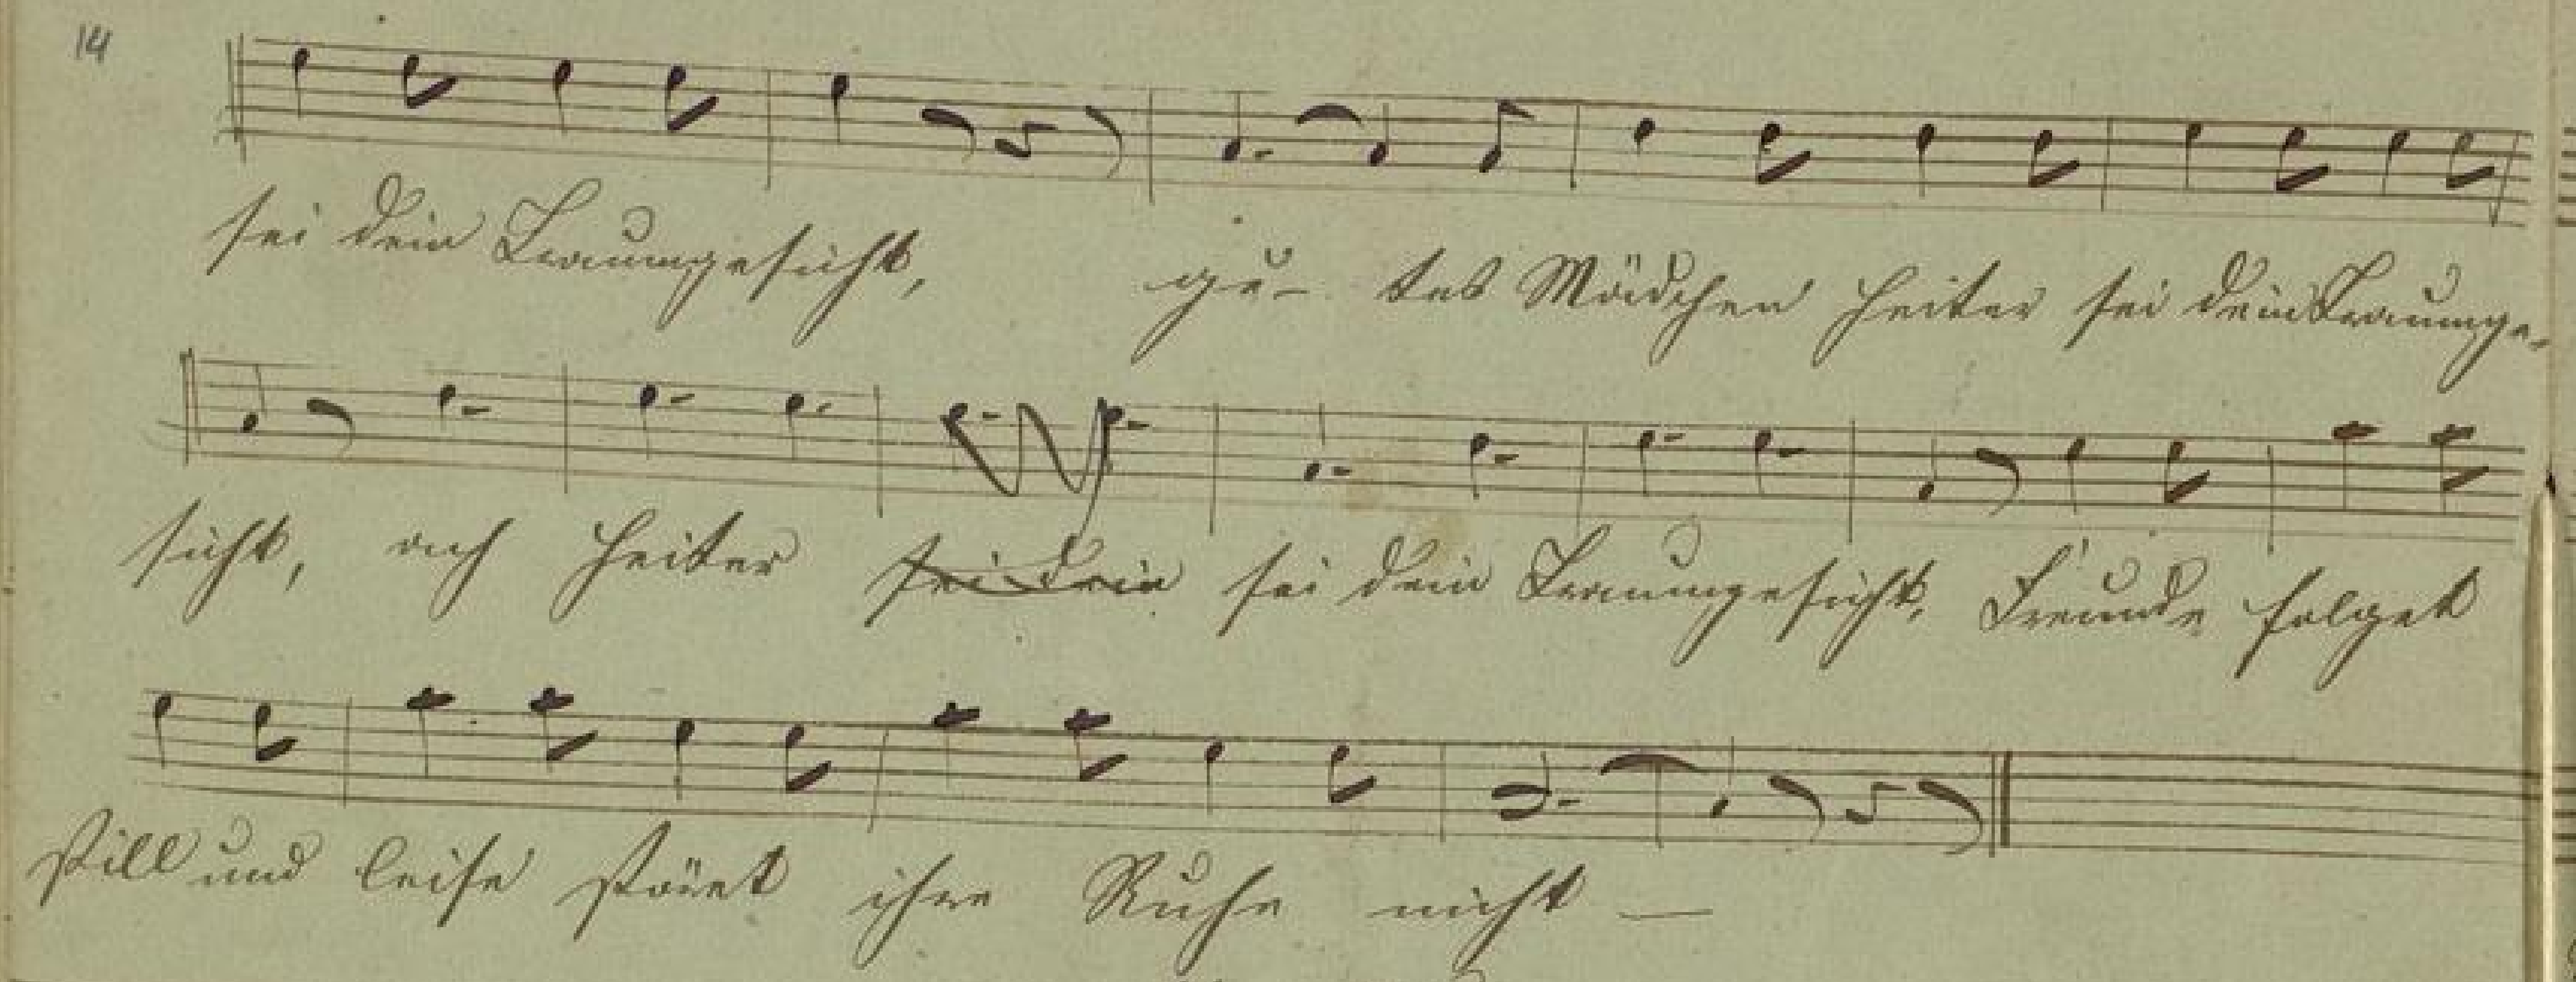 14
sei dein Traumgesicht, gu- tes Mädchen heiter sei dein Traumge-
sicht, auch heiter sei dein sei dein Traumgesicht, Freunde folget
still und leise störet ihre Ruhe nicht —